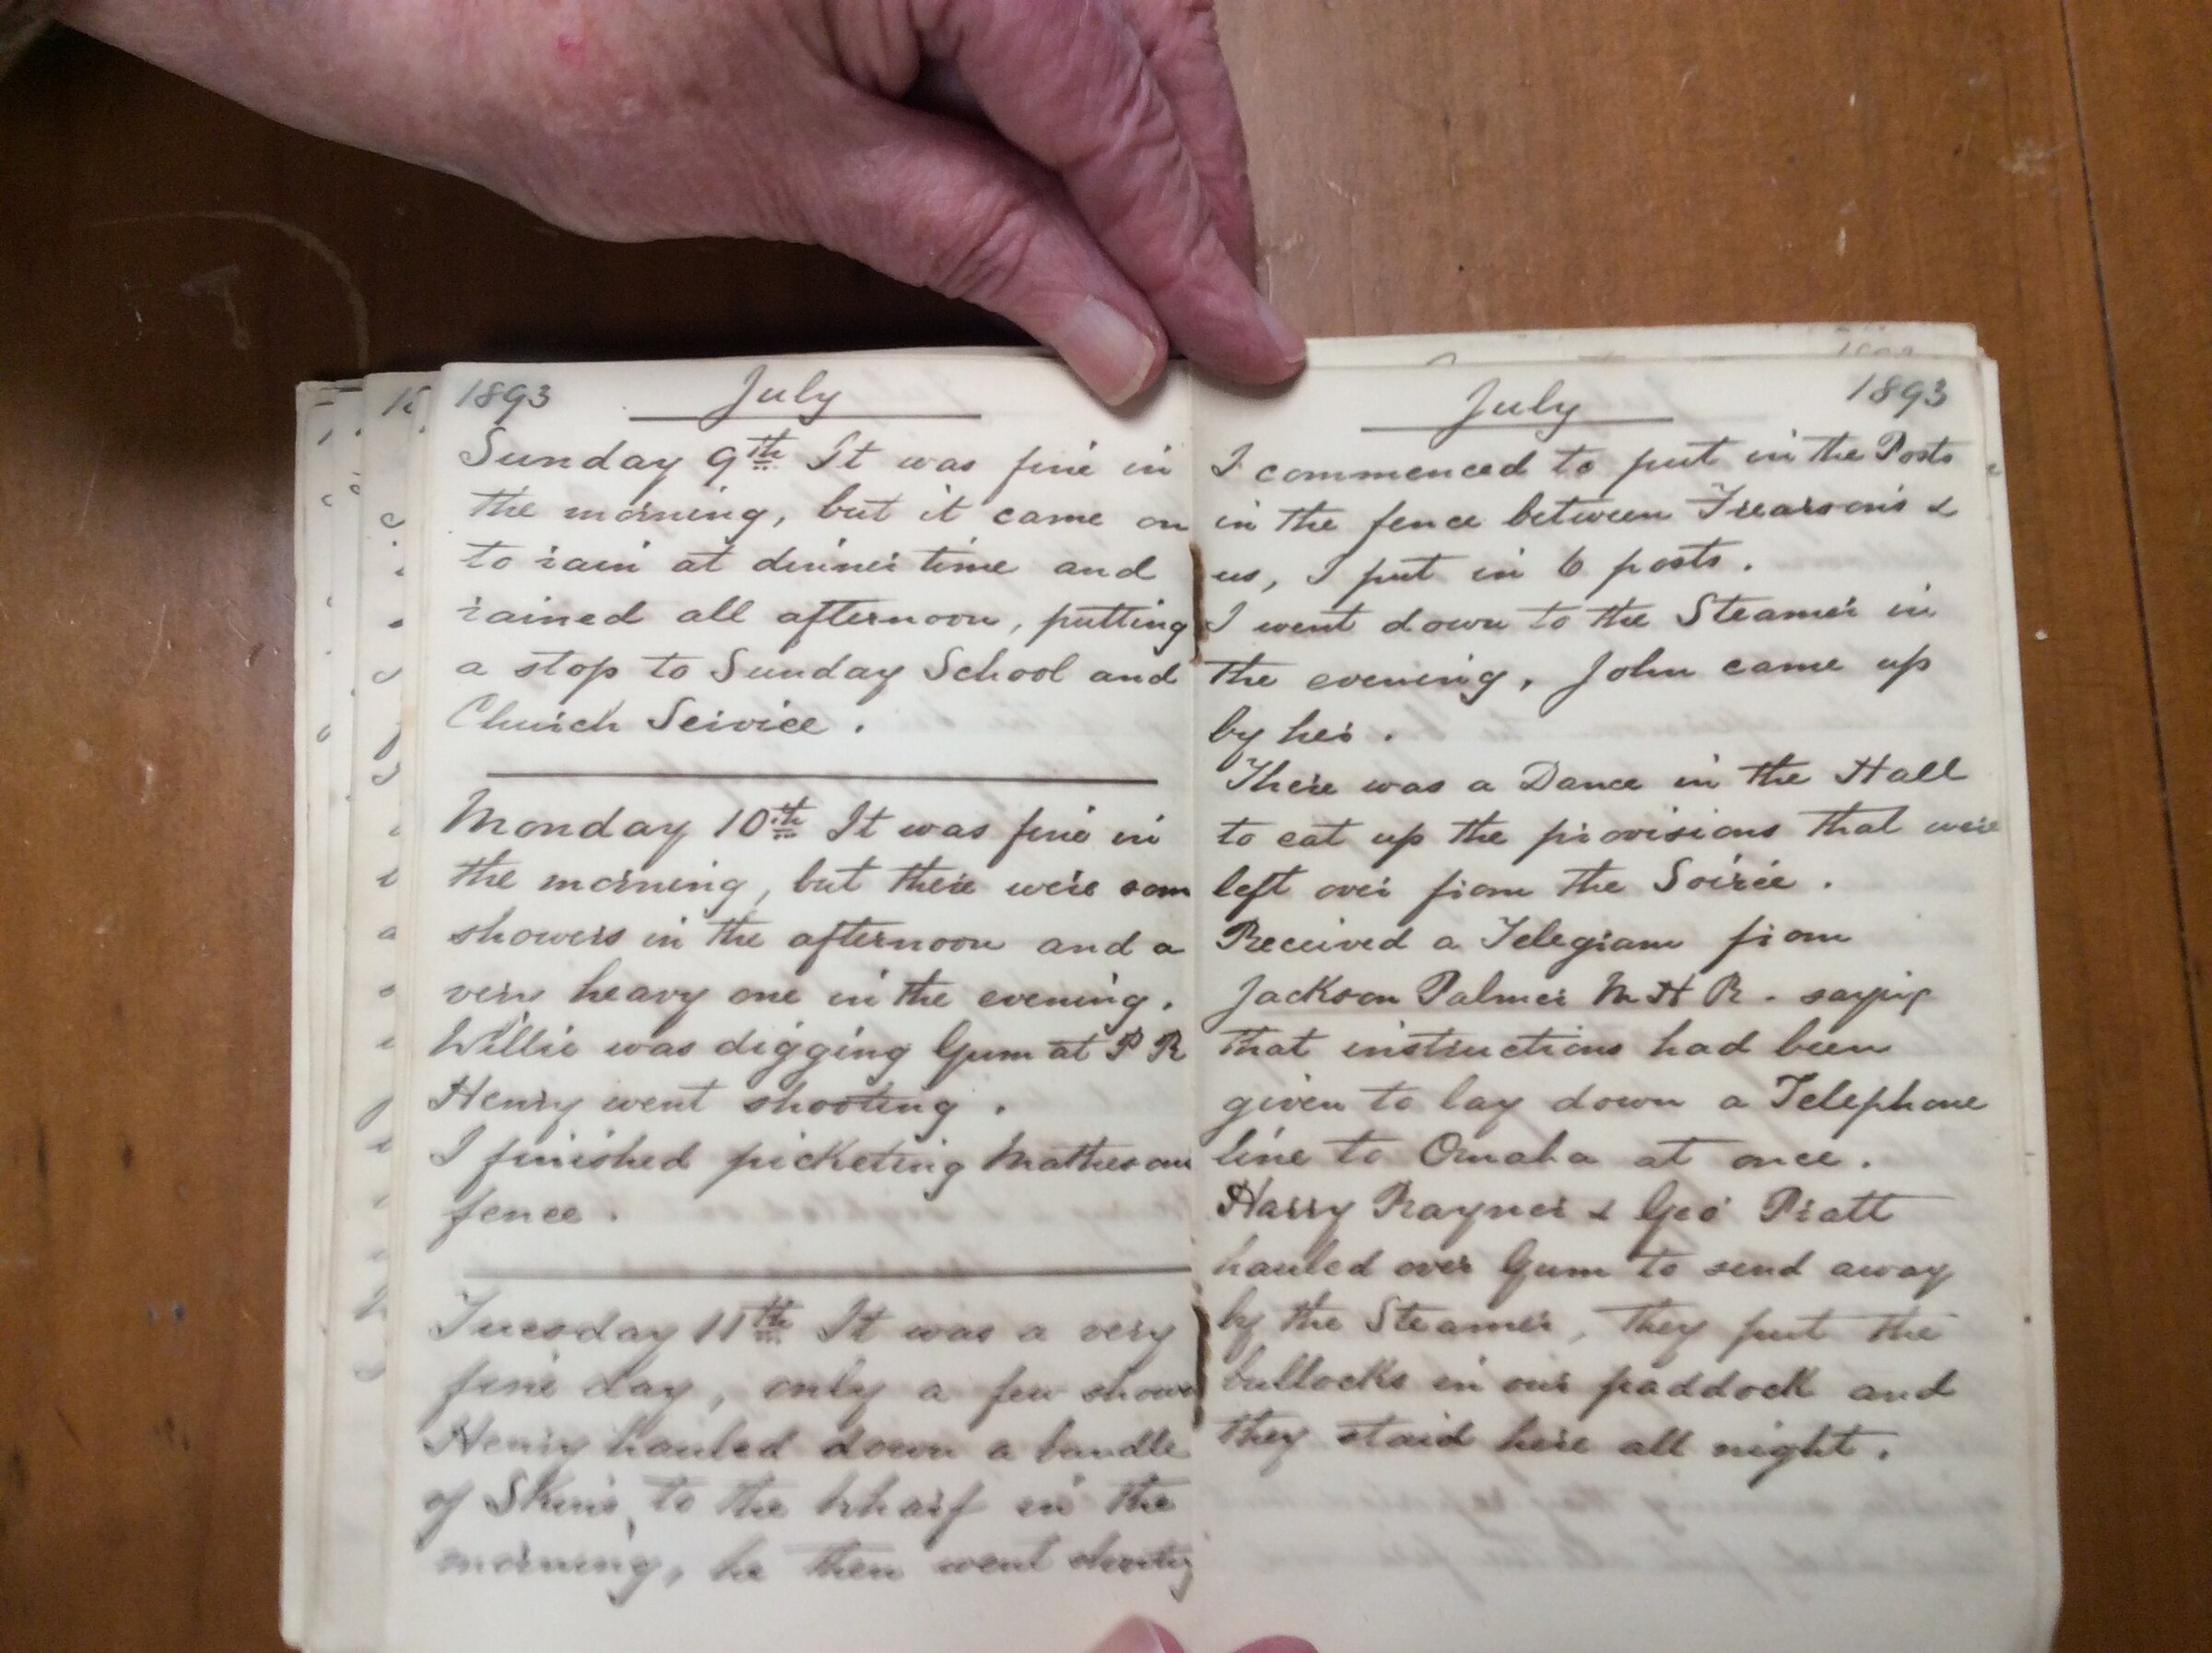 1893 July
Sunday 9th It was fine in
the morning, but it came on
to rain at dinner time and
rained all afternoon, putting
a stop to Sunday School and
Church Service.
Monday 10th It was fine in
the morning, but there were som
showers in the afternoon and a
very heavy one in the evening.
Willie was digging Gum at P R
Henry went shooting.
I finished picketing Mathesons
fence.
Tuesday 11th It was a very
fine day, only a few showe
Henry hauled down a bundle
of Skins, to the Wharf in the
morning, he then went shooting
July 1893
I commenced to put in the Posts
in the fence between Frearson's &
us, I put in 6 posts.
I went down to the Steamer in
the evening, John came up
by her.
There was a Dance in the Hall
to eat up the provisions that were
left over from the Soirée.
Received a Telegram from
Jackson Palmer M H R. saying
that instructions had been
given to lay down a Telephone
line to Omaha at once.
Harry Rayner & Geo Pratt
hauled over Gum to send away
by the Steamer, they put the
bullocks in our paddock and
they staid here all night.